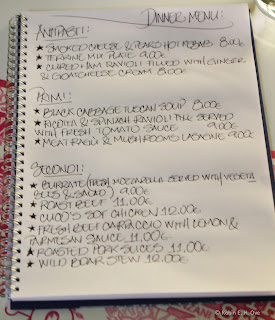 DINNER MENU:
ANTIPASTI:
★ SMOKED CHEESE & PEARS HOT KEBAB 8.00€
★ TERRINE MIX PLATE 9.00€
★ CURED HAM RAVIOLI FILLED WITH GINGER
& GOATCHEESE CREAM 8.00€
PRIMI:
★ BLACK CABBAGE TUSCAN SOUP 8.00€
★ RICOTTA & SPINASH RAVIOLI SERVED
WITH FRESH TOMATO SAUCE 9.00€
★ MEAT RAGÙ & MUSHROOMS LASAGNE 9.00€
SECONDI:
★ BURRATE (FRESH MOZZARELLA SERVED WITH VEGETA
BLES & SALAD) 9.00€
★ ROAST BEEF 11.00€
★ CUCO'S SOF CHICKEN 12.00€
★ FRESH BEEF CARPACCIO WITH LEMON &
PARMESAN SAUCE 11.00€
★ ROASTED PORK SLICES 11.00€
★ WILD BOAR STEW 12.00€
© Robin E. H. Ove